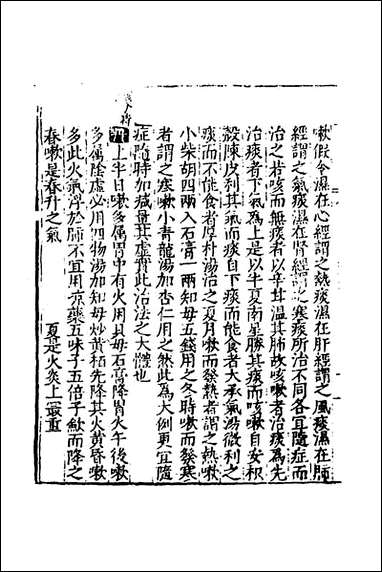 嗽假令濕在心經謂之熱痰濕在肝經謂之風痰濕在肺
經謂之氣痰濕在腎經謂之寒痰所治不同各宜隨症而
治之若咳而無痰者以辛甘温其肺故咳嗽者治痰為先
治痰者下氣為上是以半夏南星勝其痰而咳嗽自安枳
殼陳皮利其氣而痰自下痰而能食者大承氣湯微利之
痰而不能食者厚朴湯治之夏月嗽而發熱者謂之熱嗽
小柴胡四兩入石膏一兩知毋五錢用之冬時嗽而發寒
者謂之寒嗽小青龍湯加杏仁用之然此為大例更宜隨
症隨時加减量其虛實此治法之大體也
丹上半日嗽多属胃中有火用貝毋石膏降胃火午後嗽
多属隂虛必用四物湯加知毋炒黃栢先降其火黃昏嗽
多此火氣浮於肺不宜用凉藥五味子五倍子歛而降之
春嗽是春升之氣　夏是火炎上最重